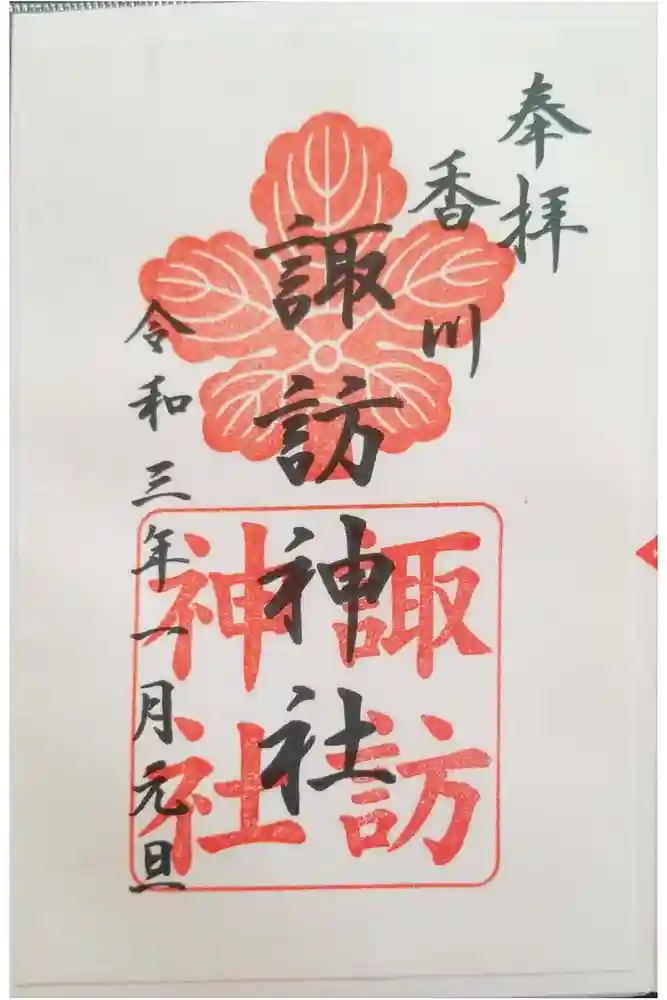 奉拝
香川
諏訪神社
令和三年一月元旦
諏訪
神社